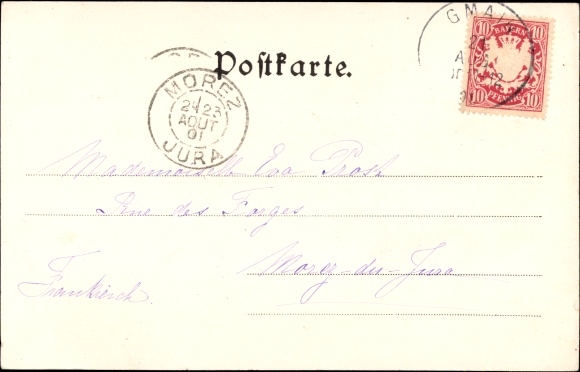 GMAI
BAYERN
10 10
PFENNIG
Postkarte.
MOREZ
24 23
AOUT
01
JURA
Mademoiselle Eva Prost
Rue des Forges
Morez-du-Jura
Frankreich